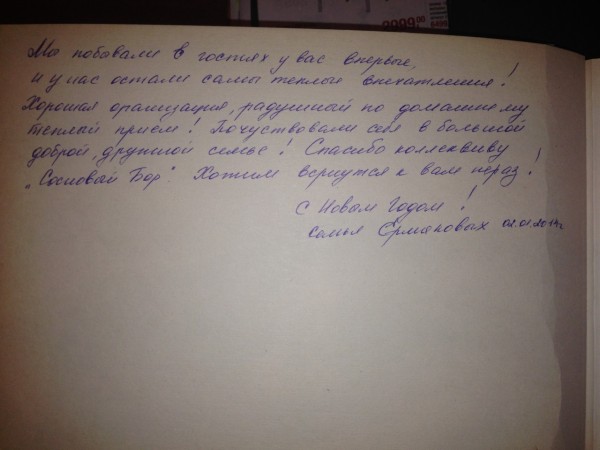 9999,00
Мы побывали в гостях у вас впервые,
и у нас остали самы теплые впечатления!
Хорошая организация, радушный по домашнему
теплый прием! Почуствовали себя в большой
доброй, дружной семье! Спасибо коллективу
„Сосновый Бор". Хотим вернутся к вам не раз!
С Новым Годом!
семья Ермаковых 02.01.2014г.